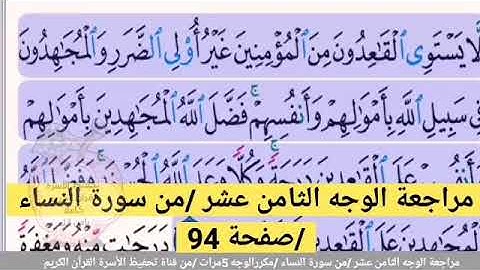 لَّا يَسْتَوِى ٱلْقَٰعِدُونَ مِنَ ٱلْمُؤْمِنِينَ غَيْرُ أُو۟لِى ٱلضَّرَرِ وَٱلْمُجَٰهِدُونَ
فِى سَبِيلِ ٱللَّهِ بِأَمْوَٰلِهِمْ وَأَنفُسِهِمْ ۚ فَضَّلَ ٱللَّهُ ٱلْمُجَٰهِدِينَ بِأَمْوَٰلِهِمْ
وَأَنفُسِهِمْ عَلَى ٱلْقَٰعِدِينَ دَرَجَةً ۚ وَكُلًّا وَعَدَ ٱللَّهُ ٱلْحُسْنَىٰ ۚ وَفَضَّلَ ٱللَّهُ
مراجعة الوجه الثامن عشر /من سورة النساء
/صفحة 94
دَرَجَٰتٍ مِّنْهُ وَمَغْفِرَةً
مراجعة الوجه الثامن عشر /من سورة النساء /مكررالوجه 5مرات /من قناة تحفيظ الأسرة القرآن الكريم